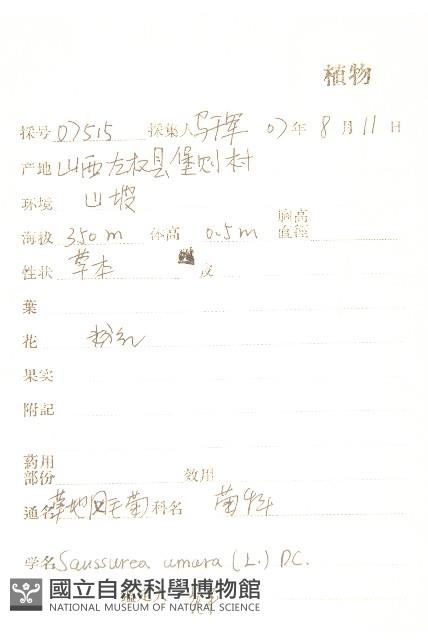 植物
採号 07515 採集人 马开军 07年 8月 11日
产地 山西左权县堡则村
环境 山坡
胸高
海拔 350m 体高 0.5m 直徑
性状 草本 皮
葉
花 粉红
果实
附記
药用
部份 效用
通名 草地风毛菊 科名 菊科
学名 Saussurea amara (L.) DC.
國立自然科學博物館
NATIONAL MUSEUM OF NATURAL SCIENCE
鑑定人